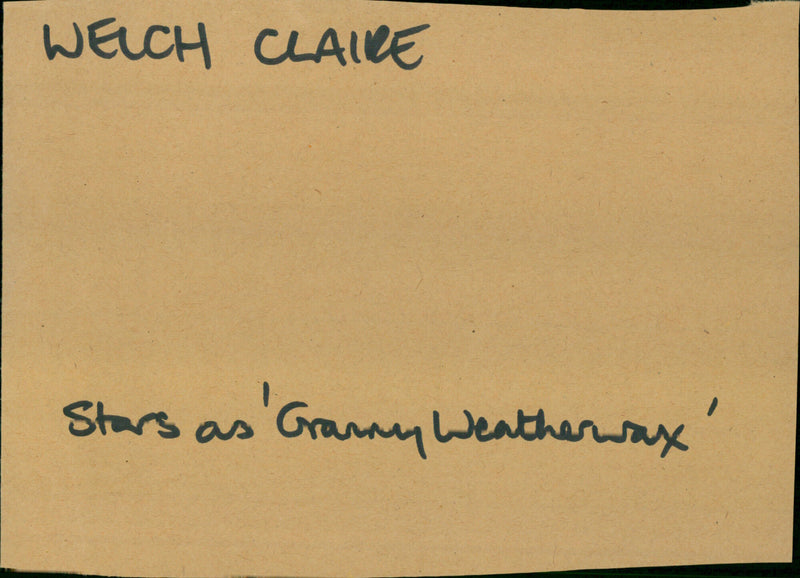 WELCH CLAIRE
Stars as 'Granny Weatherwax'